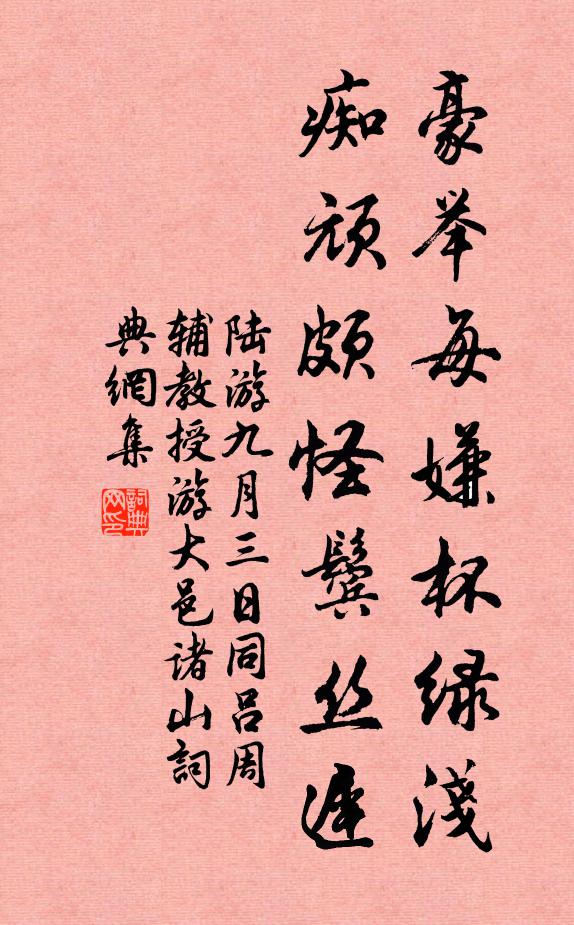 豪举每嫌杯绿淺
痴顽頗怪鬓丝遲
陆游九月三日同吕周
辅教授游大邑诸山詞
典網集
詞典网印